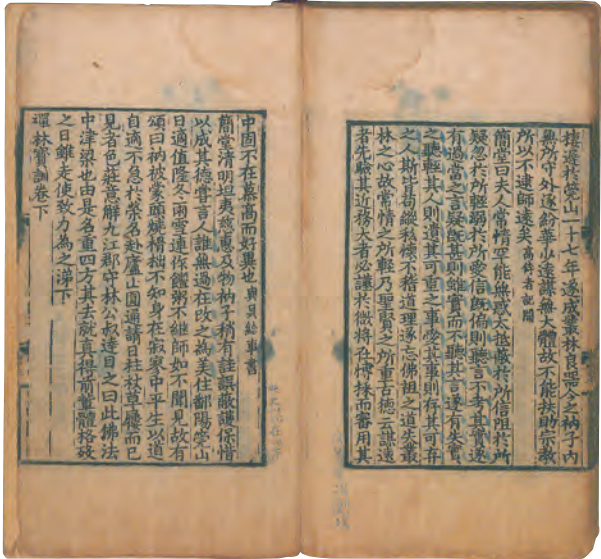 棲遲於筦山一十七年遂成叢林良器今之衲子內
無所守外逐紛華少遠謀無大體故不能扶助宗教
所以不逮師遠矣高侍者記聞
簡堂曰夫人常情罕能無惑大抵蔽於所信阻於所
疑忽於所輕溺於所愛信既偏則聽言不考其實遂
有過當之言疑既甚則雖實而不聽其言遂有失實
之聽輕其人則遺其可重之事愛其事則存其可棄
之人斯皆苟縱私懷不稽道理遂忘佛祖之道失叢
林之心故常情之所輕乃聖賢之所重古德云謀遠
者先驗其近務大者必謹於微將在博採而審用其
中固不在慕高而好異也與吳給事書
簡堂清明坦夷慈惠及物衲子稍有詿誤蔽護保惜
以成其德嘗言人誰無過在改之為美住鄱陽筦山
日適值隆冬雨雪連作饘粥不繼師如不聞見故有
頌曰衲被蒙頭燒榾柮不知身在寂寥中平生以道
自適不急於榮名赴廬山圓通請日柱杖草屨而已
見者色莊意解九江郡守林公叔達目之曰此佛法
中津梁也由是名重四方其去就真得前輩體格歿
之日雖走使致力為之涕下
禪林寶訓卷下